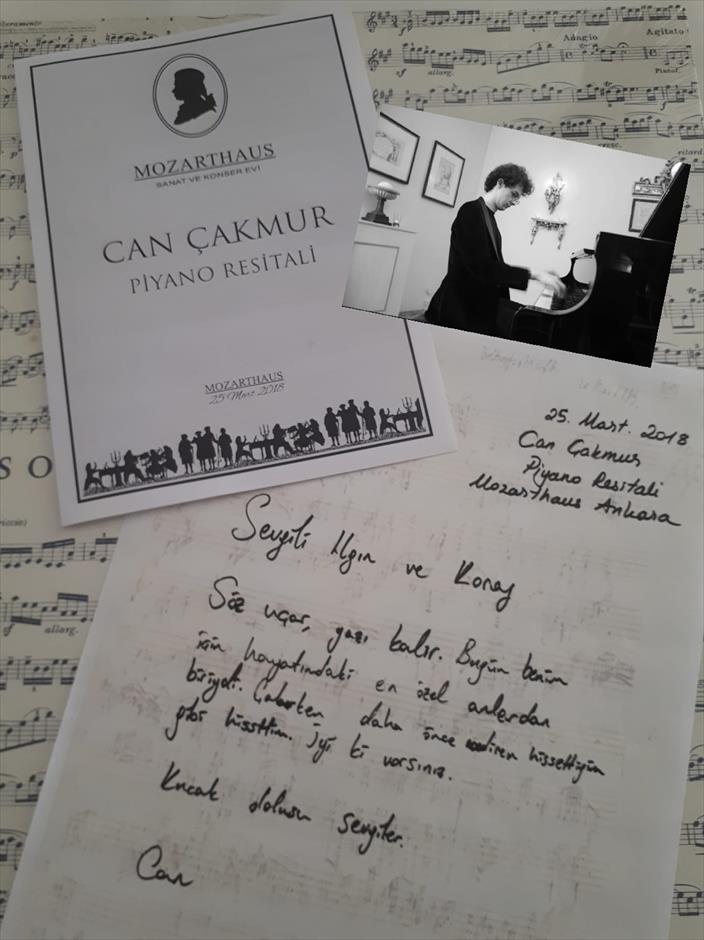 MOZARTHAUS
SANAT VE KONSER EVİ
CAN ÇAKMUR
PİYANO RESİTALİ
MOZARTHAUS
25 Mart 2018
Adagio
Agitato
sf allarg.
Pianof.
cresc.
ritard.
SO
riccio)
sf allarg.
sf allarg.
25. Mart. 2018
Can Çakmur
Piyano Resitali
Mozarthaus Ankara
Sevgili Ilgın ve Koray
Söz uçar, yazı kalır. Bugün benim
için hayatındaki en özel anlardan
biriydi. Çalarken daha önce nadiren hissettiğim
gibi hissettim. İyi ki varsınız.
Kucak dolusu sevgiler.
Can